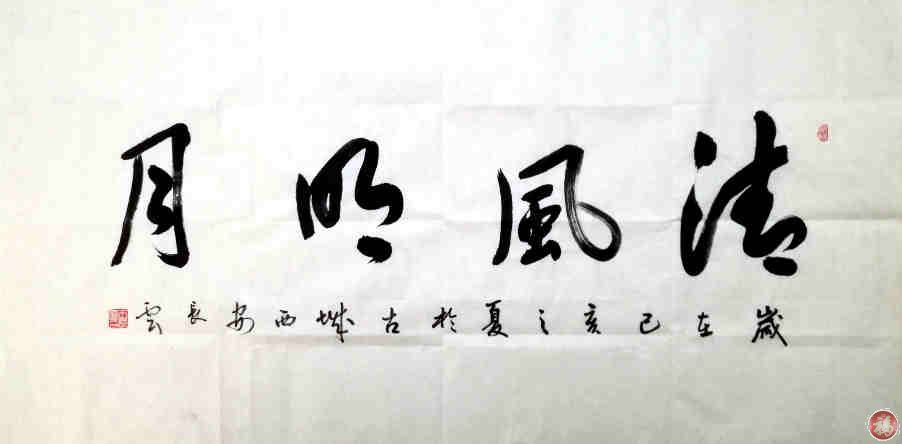 清風明月
歲在己亥之夏於古城西安長雲
福